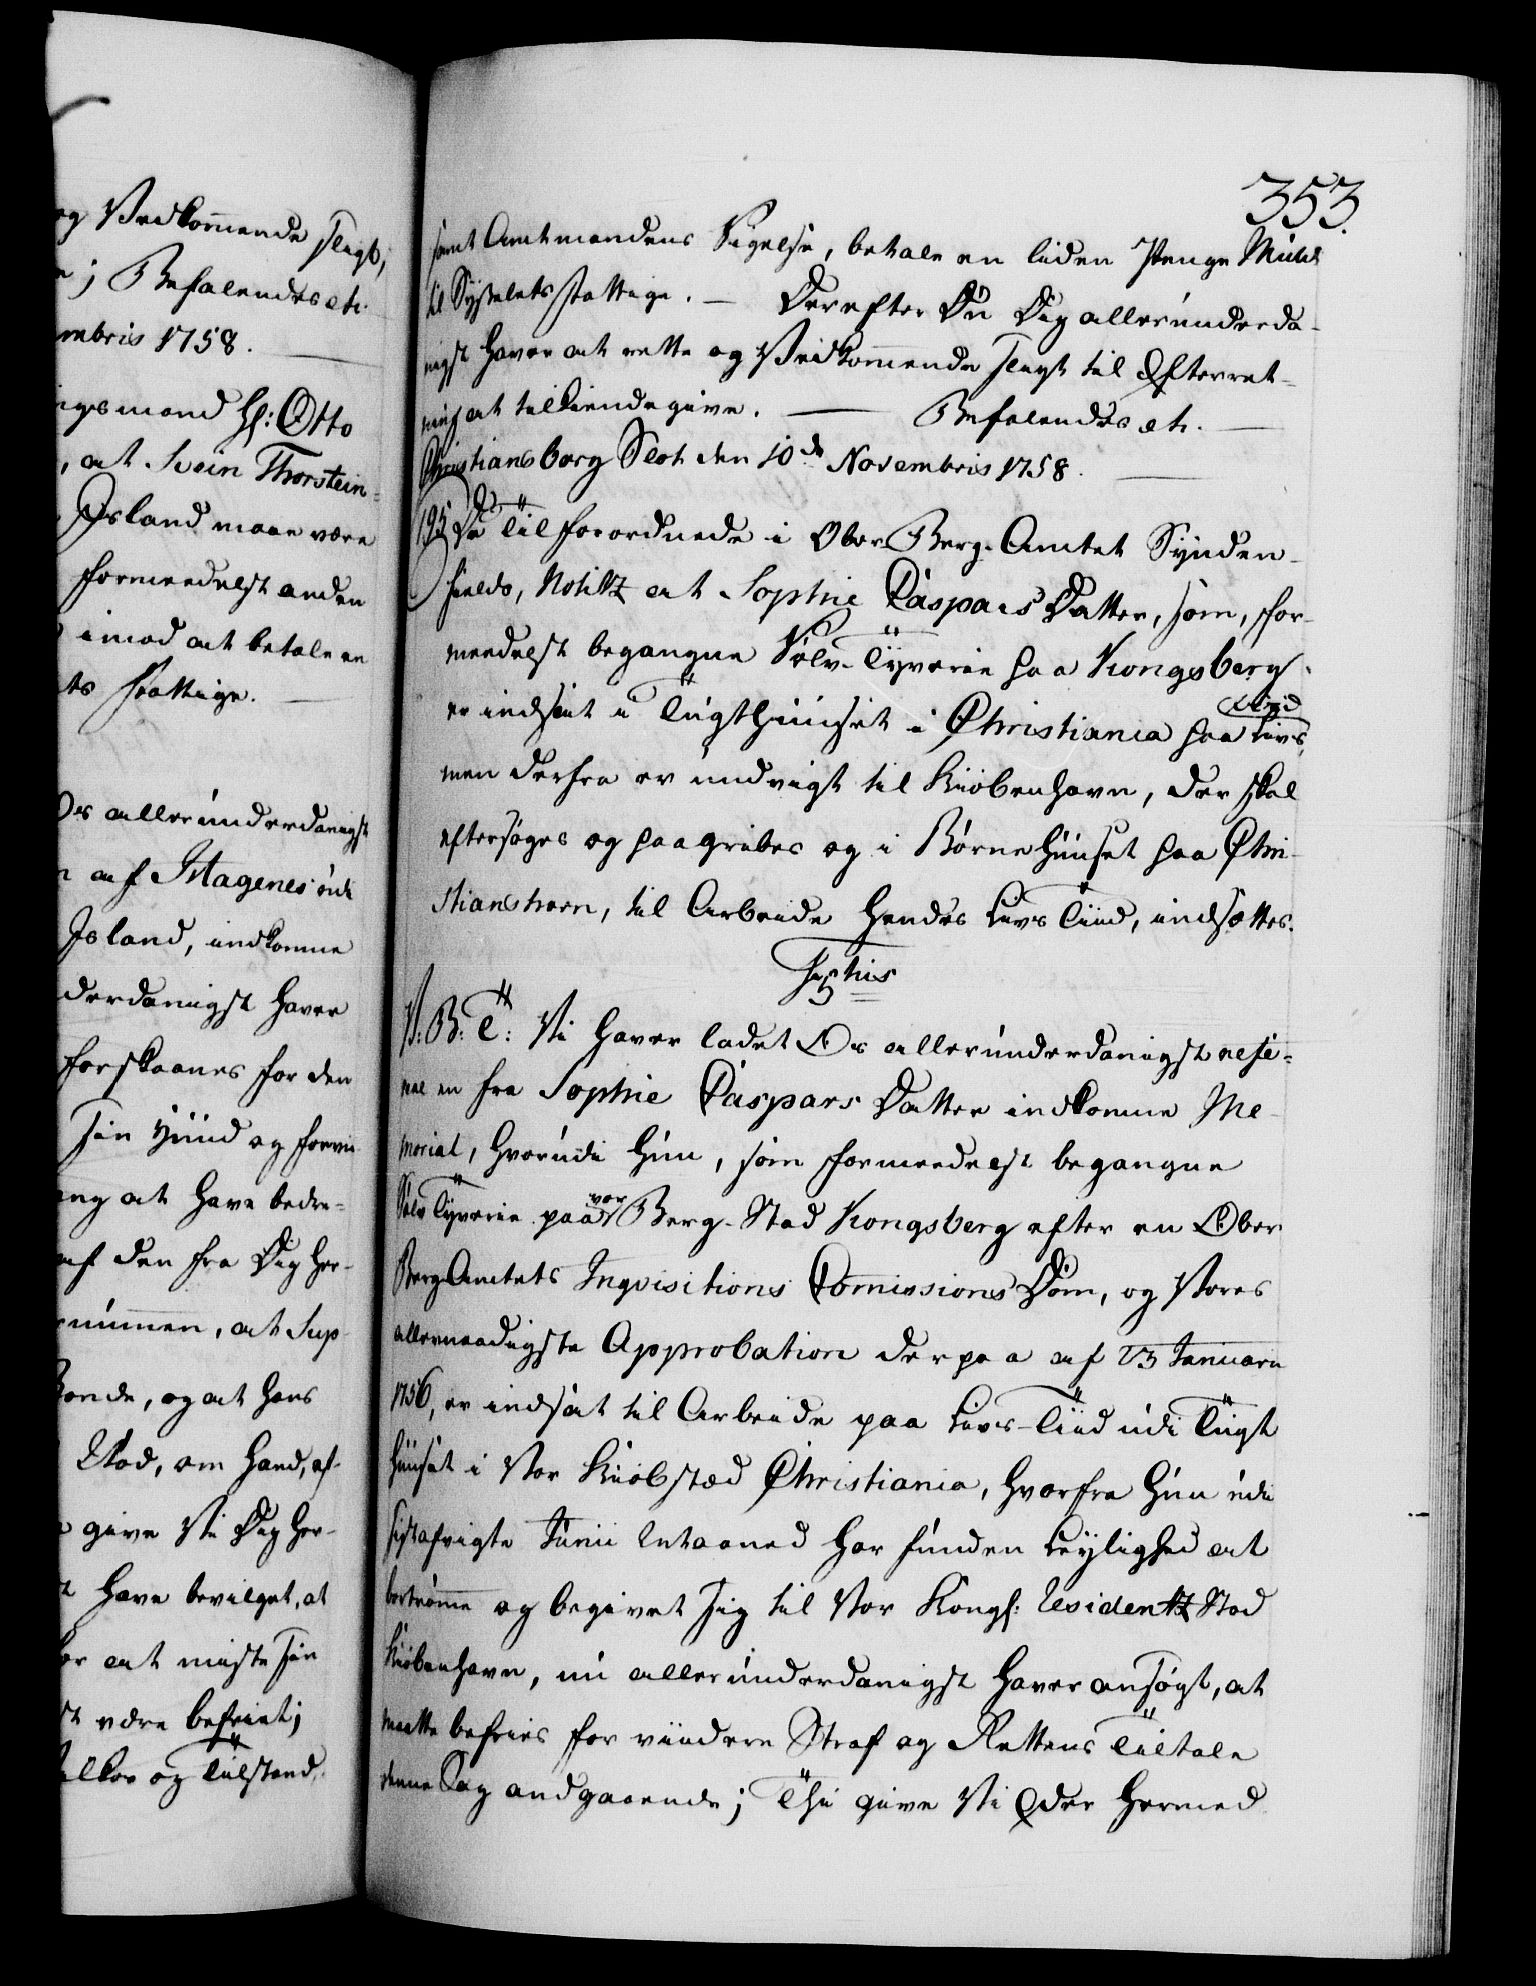 og Vedkommende sligt,
e; Befalendes etc.
embris 1758.
igsmand Hr: Otto
, at Svein Thorstein-
Island maae være
formeedelst anden
imod at betale en
ts Fattige.
Os allerunderdanigst
n af Magenes udi
Island, indkomne
derdanigst haver
forskaanes for den
Sin
ang at have bedre-
af den fra Dig her-
nummen, at Sup-
Bonde, og at hans
Stod, om hand, af-
give Vi Dig her-
t have bevilget, at
for at miste sin
st være befriet;
ilkor og Tilstand,
353.
samt Amtmandens Sigelse, betale en liden Penge Mulct
til Sysselets fattige. — Derefter Du Dig allerunderda-
nigst haver at rette og Vedkommende sligt til Efterret-
ning at tilkiendegive. — Befalendes etc.
Christiansborg Slot den 10de Novembris 1758.
195 De Tilforordnede i Ober Berg-Amtet Synden-
fields, Notitz at Sophie Caspars Datter, som, for-
meedelst begangne Sølv-Tyverie paa Kongsberg
er indsat i Tugthuuset i Christiania paa Livs Tiid,
men derfra er undvigt til Kiøbenhavn, der skal
eftersøges og paagribes og i Børnehuuset paa Chri-
stianshavn, til Arbeide hendes Livs Tiid, indsættes.
F5tus
V: B: T: Vi haver ladet Os allerunderdanigst refe-
rere en fra Sophie Caspars Datter indkomne Me-
morial, hvorudi hun, som formeedelst begangne
Sølv Tyverie paa vor Berg-Stad Kongsberg efter en Ober
BergAmtets Inqvisitions Comissions Dom, og Vores
allernaadigste Approbation derpaa af 23 Januarii
1756, er indsat til Arbeide paa Livs-Tiid udi Tugt
huuset i Vor Kiøbstæd Christiania, hvorfra hun udi
sistafvigte Junii Maaned har funden Leylighed at
bortrømme og begivet sig til Vor Kongl: Residentz Stad
Kiøbenhavn, nu allerunderdanigst haver ansøgt, at
maatte befries for viidere Straf og Rettens Tiltale
denne Sag andgaaende; Thi give Vi Eder hermed